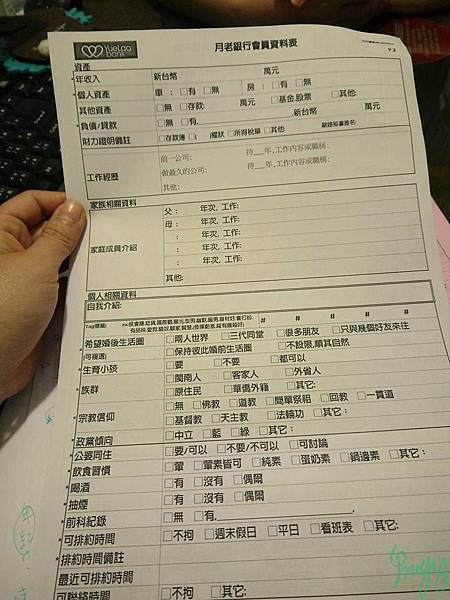 YueLao Bank 月老銀行會員資料表
資產
*年收入 新台幣 萬元
*個人資產 車：□有 □無 房：□有 □無
其他資產 □無 □存款: 萬元 □基金,股票 □其他:
*負債/貸款 □無 □有, ,新台幣 萬元
財力證明備註 □存款簿 □( )權狀 □所得稅單 □其他:
工作經歷
前一公司: 待__年,工作內容或職稱:
做最久的公司: 待__年,工作內容或職稱:
其他:
家族相關資料
家庭成員介紹
父： 年次, 工作:
母： 年次, 工作:
： 年次, 工作:
： 年次, 工作:
： 年次, 工作:
其他:
個人相關資料
自我介紹:
# # # # #
*希望婚後生活圈 □兩人世界 □三代同堂 □很多朋友 □只與幾個好友來往
(可複選) □保持彼此婚前生活圈 □不設限,順其自然
*生育小孩 □要 □不要 □都可以
*族群 □閩南人 □客家人 □外省人
□原住民 □華僑外籍 □其它:
*宗教信仰 □無 □佛教 □道教 □簡單祭祖 □回教 □一貫道
□基督教 □天主教 □法輪功 □其它：
*政黨傾向 □中立 □藍 □綠 □其它：
*公婆同住 □要/可以 □不要/不可以 □可討論
*飲食習慣 □葷 □葷素皆可 □純素 □蛋奶素 □鍋邊素 □其它：
*喝酒 □有 □沒有 □偶爾
*抽煙 □有 □沒有 □偶爾
*前科紀錄 □無 □有,
*可排約時間 □不拘 □週末假日 □平日 □看班表 □其它:
*排約時間備註
最近可排約時間
*可聯絡時間 □不拘 □其它: